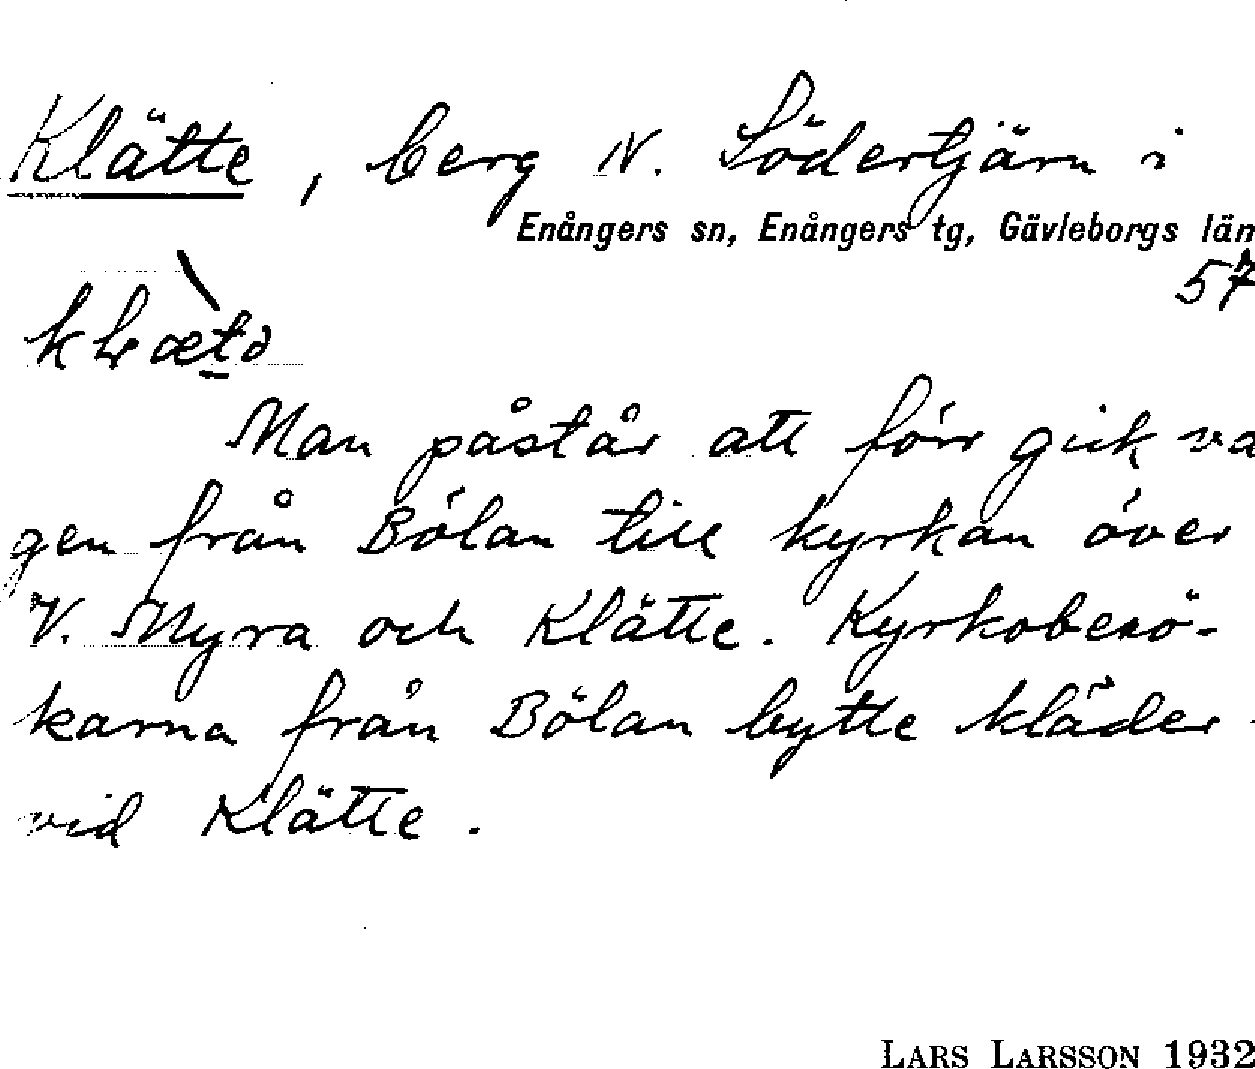 Klätte, berg N. Södertjärn i
Enångers sn, Enångers tg, Gävleborgs län
57
Man påstår att förr gick vä
gen från Bölan till kyrkan över
V. Myra och Klätte. Kyrkobesö-
karna från Bölan bytte kläder
vid Klätte.
LARS LARSSON 1932